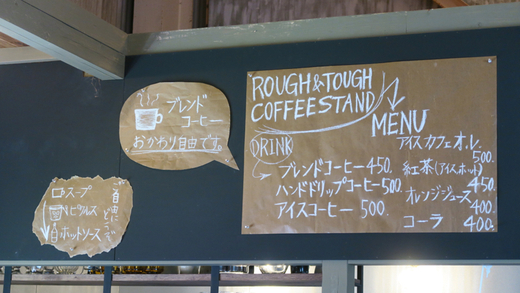 ブレンド
コーヒー
おかわり自由です。
ご自由にどうぞ
スープ
ピクルス
ホットソース
ROUGH&TOUGH
COFFEESTAND
MENU
DRINK
ブレンドコーヒー450.
ハンドドリップコーヒー500.
アイスコーヒー 500.
アイスカフェオレ.
500.
紅茶(アイスホット)
450.
オレンジジュース
400.
コーラ 400.